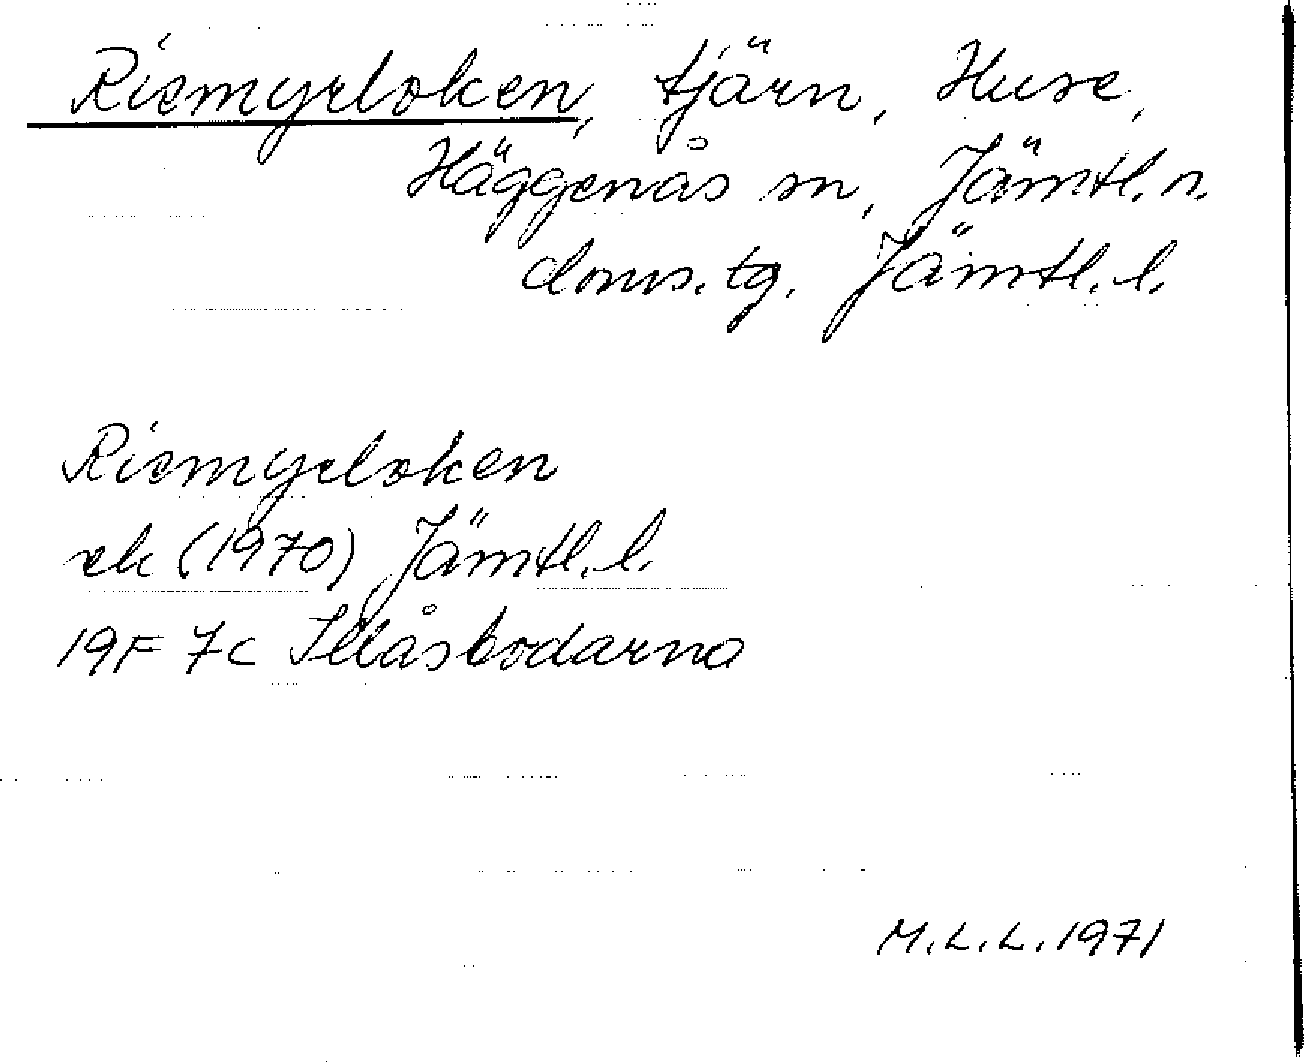 Rismyrloken, tjärn, Huse,
Häggenås sn, Jämtl. n.
doms. tg. Jämtl. l.
Rismyrloken
ek (1970) Jämtl. l.
19F 7c Illåsbodarna
M.L.L. 1971